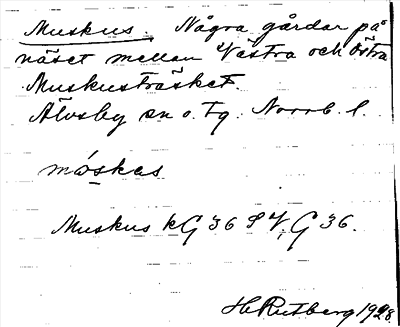 Muskus. Några gårdar på
näset mellan Västra och Östra
Muskusträsket.
Älvsby sn o. tg. Norrb. l.
mὼskas
Muskus kG 36 SV, G 36.
H Rutberg 1928.